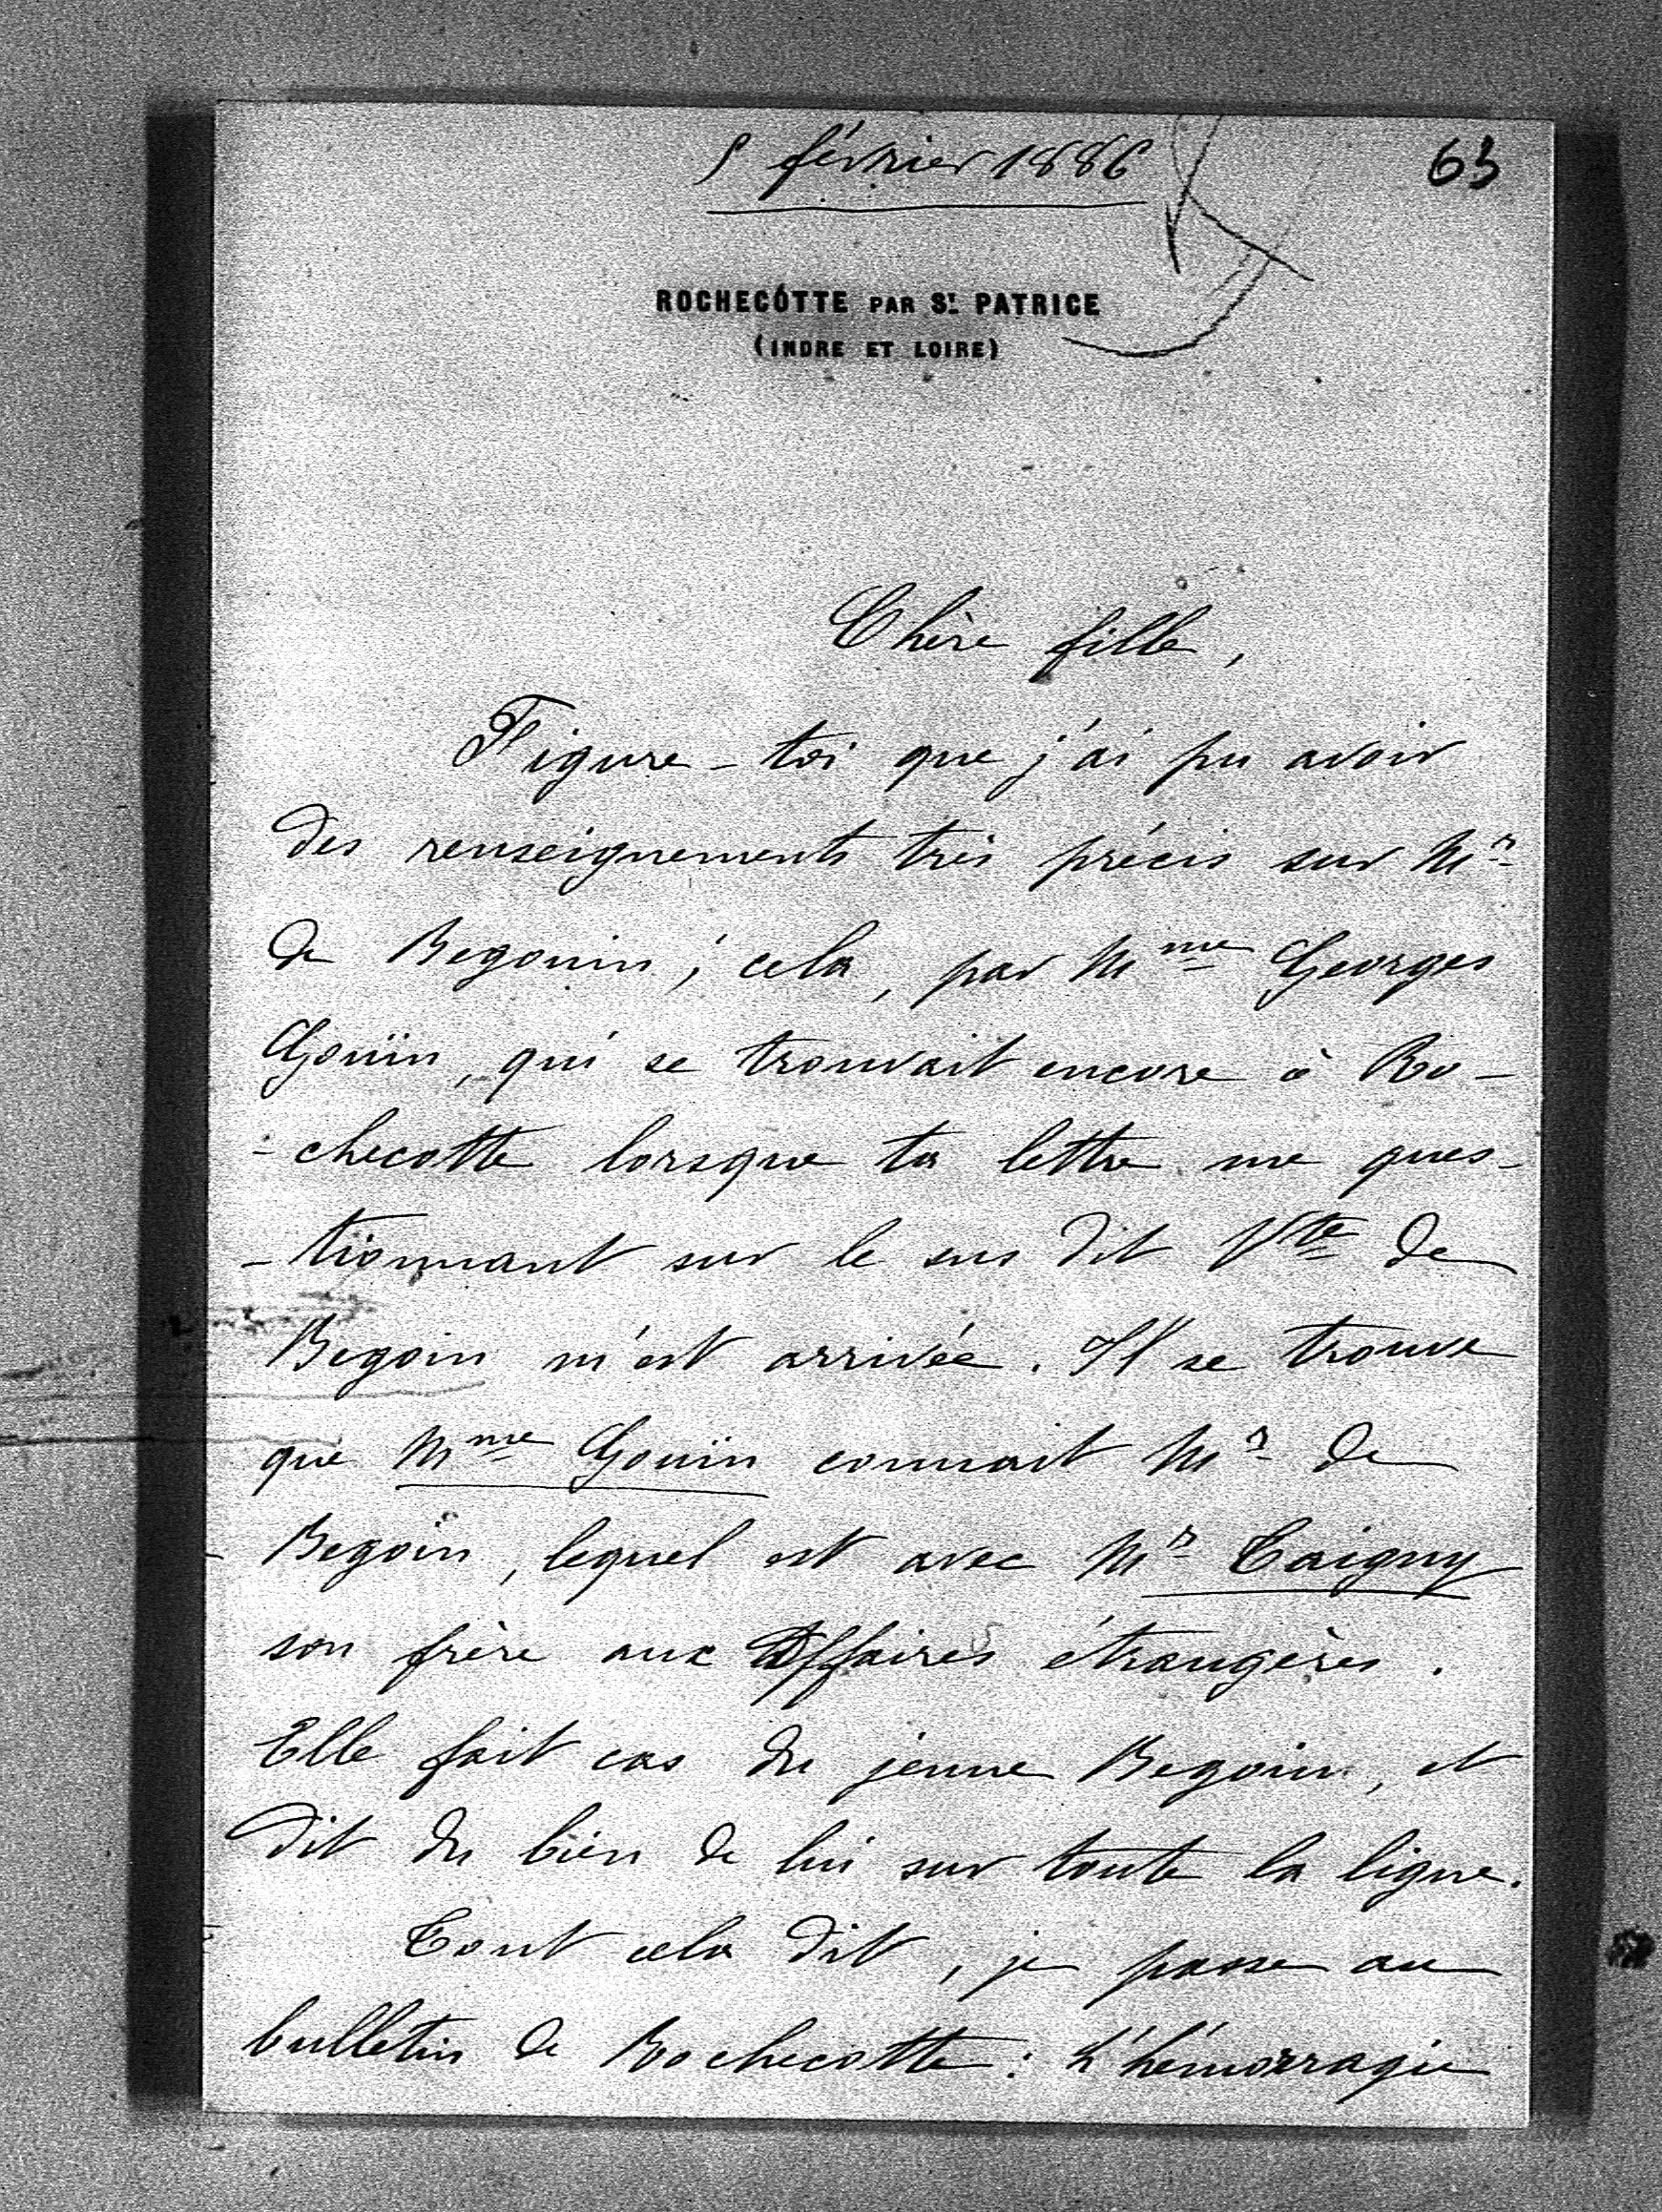 5 février 1886
63
ROCHECOTTE PAR St PATRICE
(INDRE ET LOIRE)
Chère fille,
Figure-toi que j'ai pu avoir
des renseignements très précis sur Mr
de Begouin ; cela, par Mme Georges
Goüin, qui se trouvait encore à Ro-
-checotte lorsque ta lettre me ques-
-tionnant sur le sus dit Vte de
Begoin m'est arrivée. Il se trouve
que Mme Goüin connait Mr de
Begoin, lequel est avec Mr Taigny
son frère aux Affaires étrangères.
Elle fait cas du jeune Begoin, et
dit du bien de lui sur toute la ligne.
Tout cela dit, je passe au
bulletin de Rochecotte : L'hémorragie